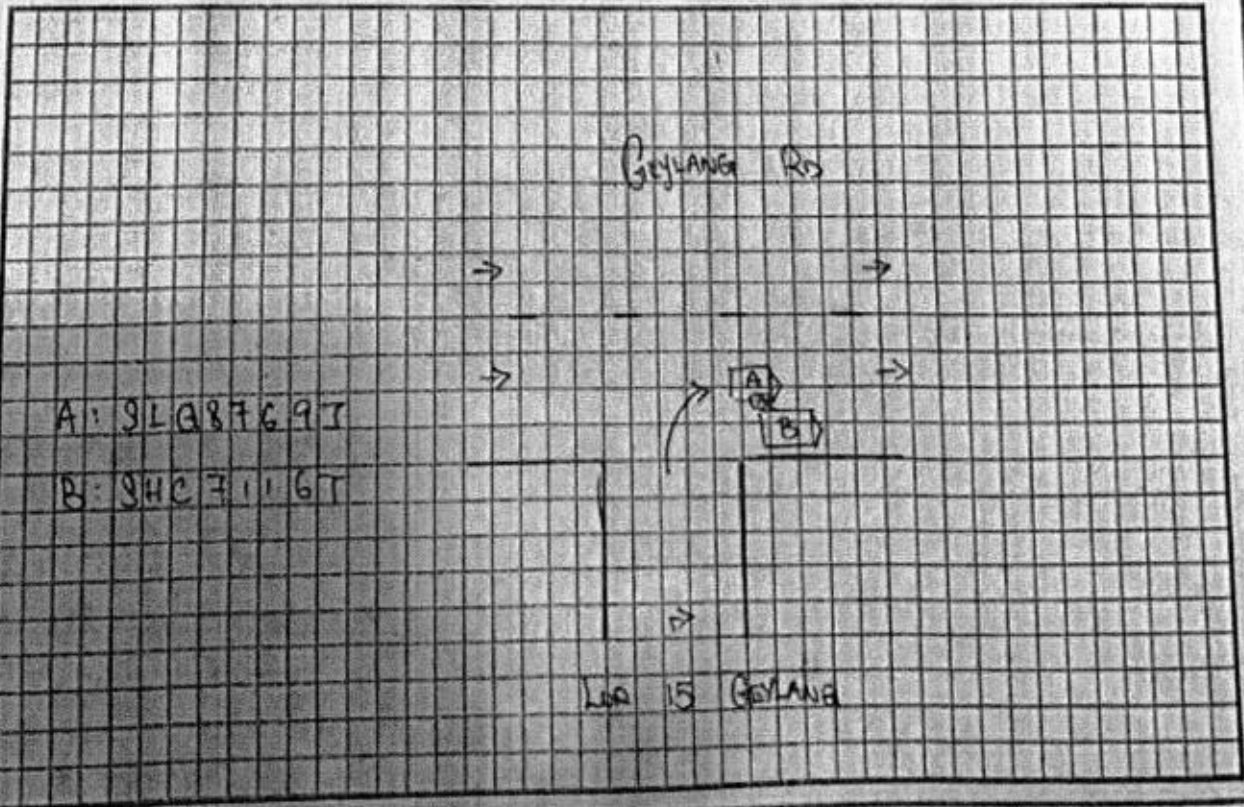 GEYLANG RD
A
B
A: SLQ8769J
B: SHC7116T
LOR 15 GEYLANG